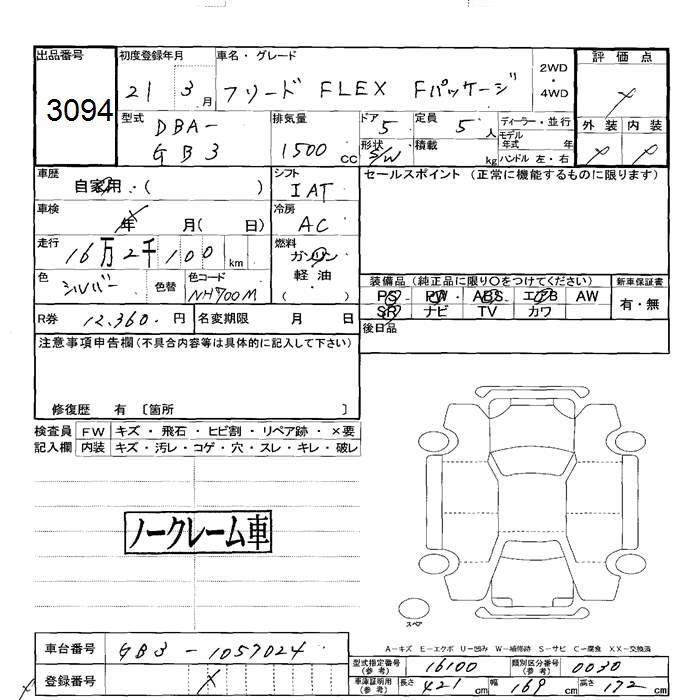 出品番号 初度登録年月 車名・グレード 2WD・4WD 評価点
3094 21 3月 フリード FLEX Fパッケージ
型式 排気量 ドア 定員 ディーラー・並行 外装 内装
DBA- 5 5人 モデル年式 年
GB3 1500cc 形状 S/W 積載 kg ハンドル 左・右
車歴 シフト セールスポイント (正常に機能するものに限ります)
自家用・( ) IAT
車検 冷房
年 月( 日) AC
走行 燃料
16万2千100km ガソリン
色 色替 色コード 軽油 装備品 (純正品に限り〇をつけてください) 新車保証書
シルバー NH700M ( ) PS PW ABS エアB AW 有・無
R券 12,360.円 名変期限 月 日 SR ナビ TV カワ
後日品
注意事項申告欄(不具合内容等は具体的に記入して下さい)
修復歴 有 〔箇所 〕
検査員 FW キズ・飛石・ヒビ割・リペア跡・×要
記入欄 内装 キズ・汚レ・コゲ・穴・スレ・キレ・破レ
ノークレーム車
スペア
A-キズ E-エクボ U-凹み W-補修跡 S-サビ C-腐食 XX-交換済
車台番号 GB3-1057024
登録番号
型式指定番号(参考) 16100 類別区分番号(参考) 0030
車庫証明用(参考) 長さ 421cm 幅 169cm 高さ 172cm